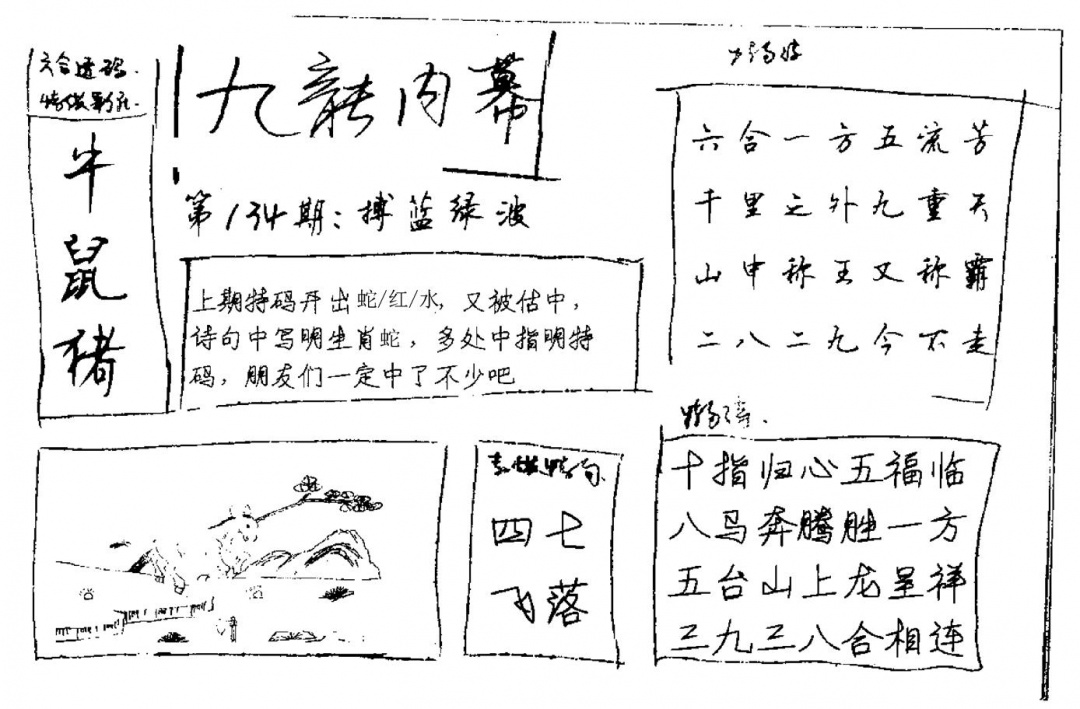 六合透码
牛
鼠
猪
九龍内幕
第134期：搏蓝绿波
上期特码开出蛇/红/水，又被估中，
诗句中写明生肖蛇，多处中指明特
码，朋友们一定中了不少吧
六合一方五流苦
千里之外九重天
山中称王又称霸
二八二九今不走
十指归心五福临
八马奔腾胜一方
五台山上龙呈祥
三九三八合相连
四七
飞落